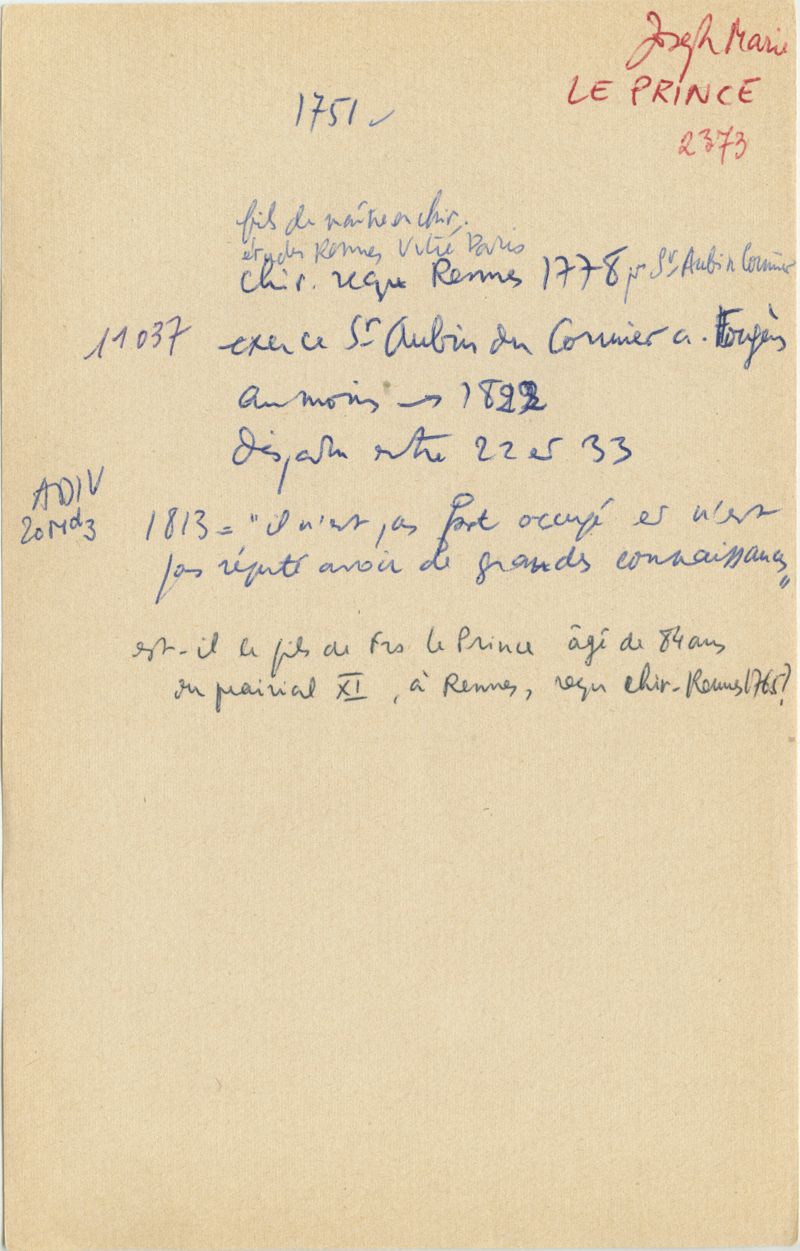 Joseph Marie
LE PRINCE
2373
1751
fils de maître en chir.
études Rennes Vitré Paris
chir. reçu Rennes 1778 pr St Aubin Cormier
11037 exerce St Aubin du Cormier a. Fougères
au moins → 1822
disparu entre 22 et 33
ADIV
20Md3
1813 = "il n'est pas fort occupé et n'est
pas réputé avoir de grandes connaissances"
est-il le fils de Frs le Prince âgé de 84 ans
en prairial XI, à Rennes, reçu chir. Rennes 1765?